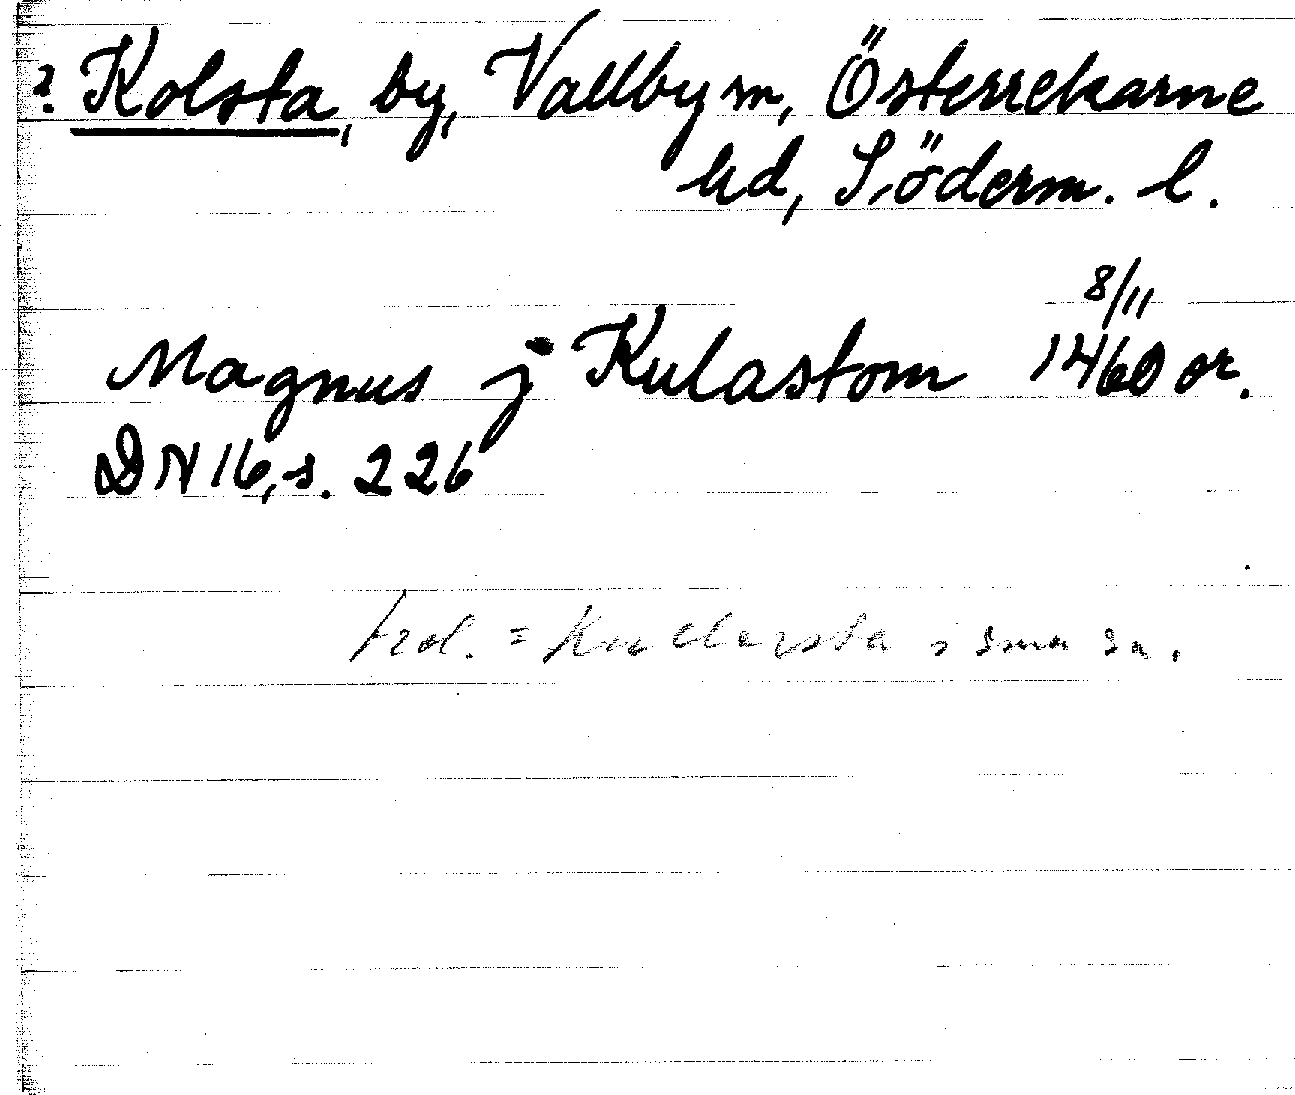 ? Kolsta, by, Vallby sn, Österrekarne
hd, Söderm. l.
8/11
Magnus j Kulastom 1460 or.
DN 16, s. 226
trol. = Kullersta i sma sn.